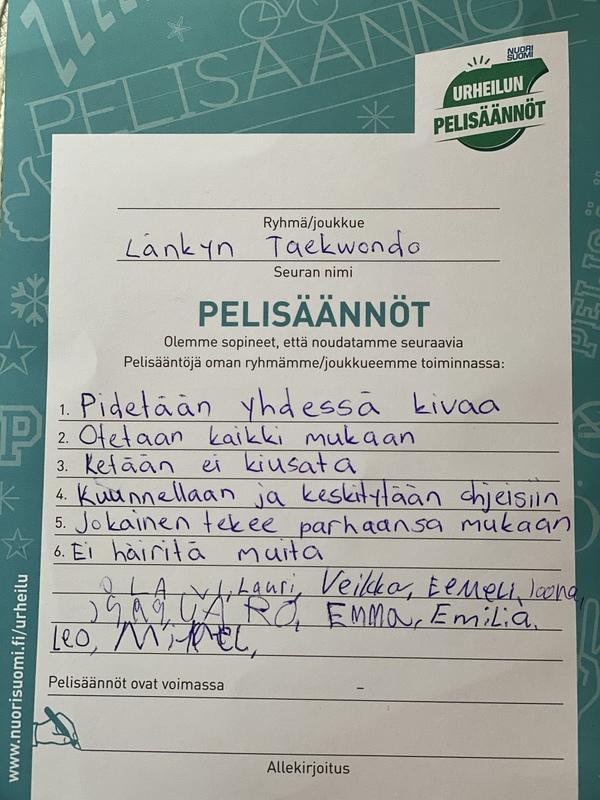 PELISÄÄNNÖT
NUORI
SUOMI
URHEILUN
PELISÄÄNNÖT
Ryhmä/joukkue
Länkyn Taekwondo
Seuran nimi
PELISÄÄNNÖT
Olemme sopineet, että noudatamme seuraavia
Pelisääntöjä oman ryhmämme/joukkueemme toiminnassa:
1. Pidetään yhdessä kivaa
2. Otetaan kaikki mukaan
3. Ketään ei kiusata
4. Kuunnellaan ja keskitytään ohjeisiin
5. Jokainen tekee parhaansa mukaan
6. Ei häiritä muita
Lauri, Veikko, EEMELI, Joona,
EMMA, Emilia,
Leo,
Pelisäännöt ovat voimassa –
Allekirjoitus
www.nuorisuomi.fi/urheilu